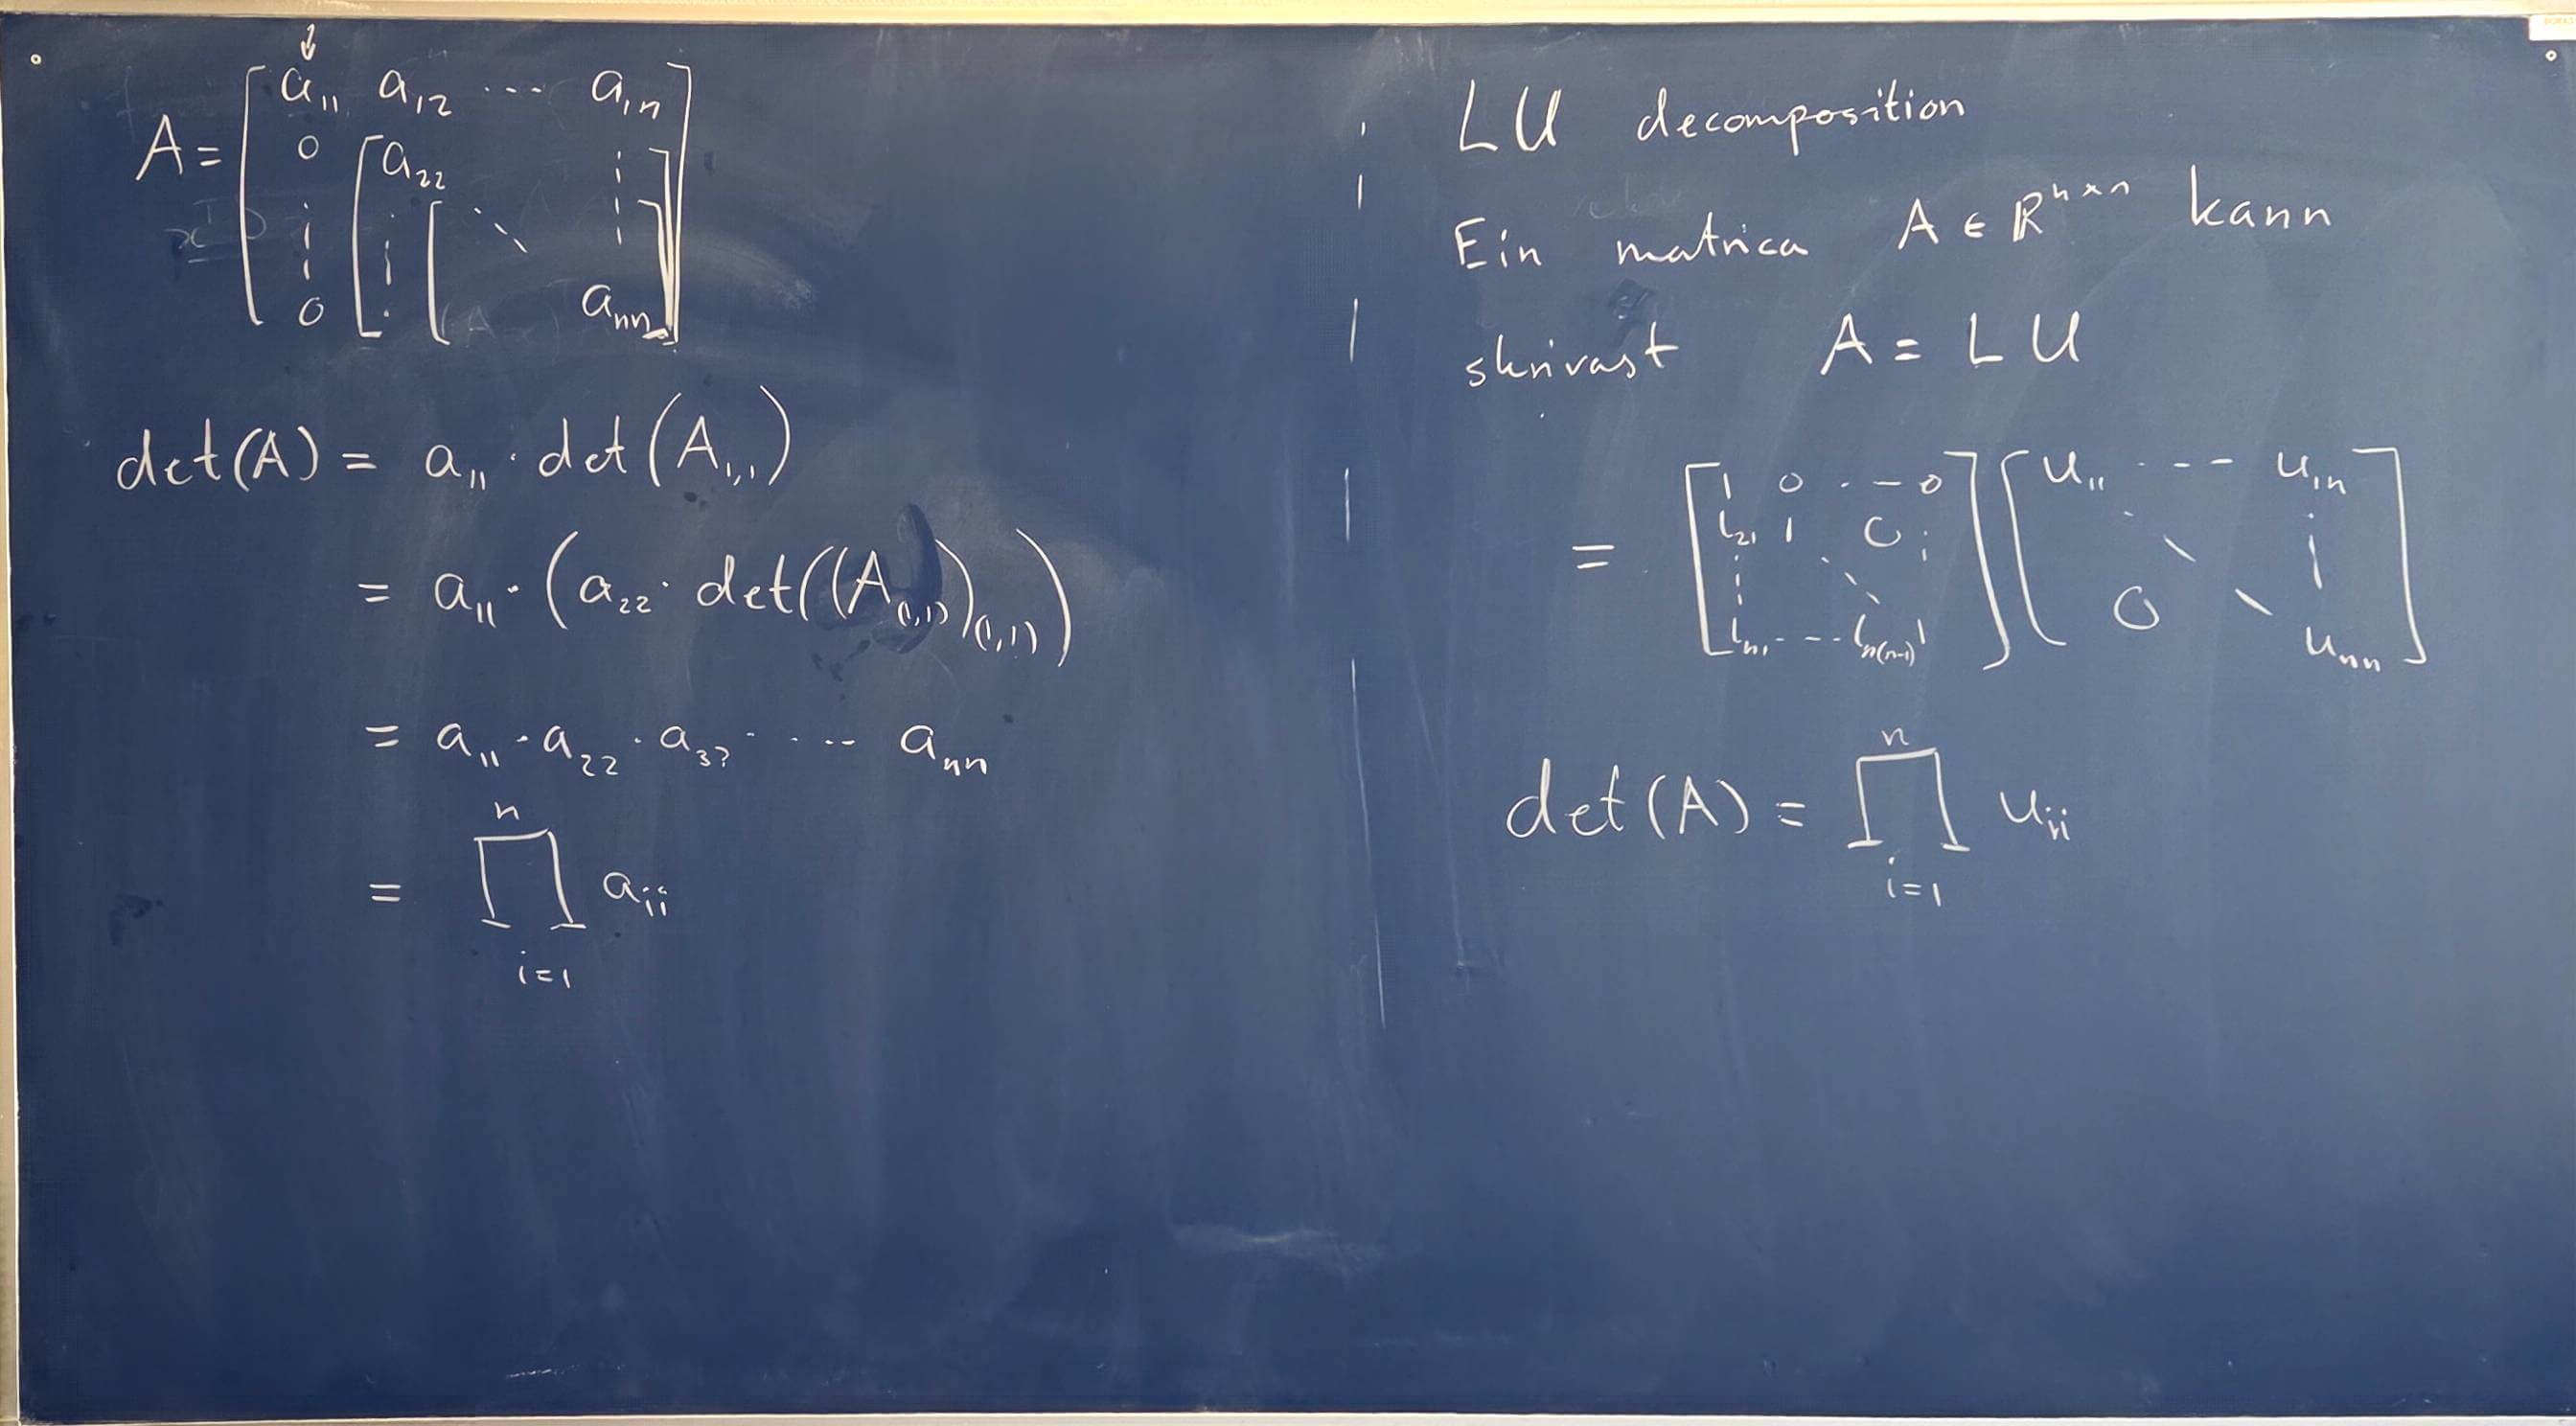 A = [ a₁₁ a₁₂ ⋯ a₁ₙ
0 [ a₂₂ ⋮
⋮ [ ⋮ [ ⋱ ⋮
0 ⋮ aₙₙ ]
det(A) = a₁₁ · det(A₁,₁)
= a₁₁ · (a₂₂ · det((A₍₁,₁₎)₍₁,₁₎))
= a₁₁ · a₂₂ · a₃₃ · ⋯ aₙₙ
n
= ∏ aᵢᵢ
i=1
LU decomposition
Ein matrica A ∈ ℝⁿˣⁿ kann
skrivast A = LU
= [ 1 0 ⋯ 0 ] [ u₁₁ ⋯ u₁ₙ ]
l₂₁ 1 0 ⋮ ⋱ ⋮
⋮ ⋱ 0 ⋱
lₙ₁ ⋯ lₙ₍ₙ₋₁₎ 1 uₙₙ
n
det(A) = ∏ uᵢᵢ
i=1